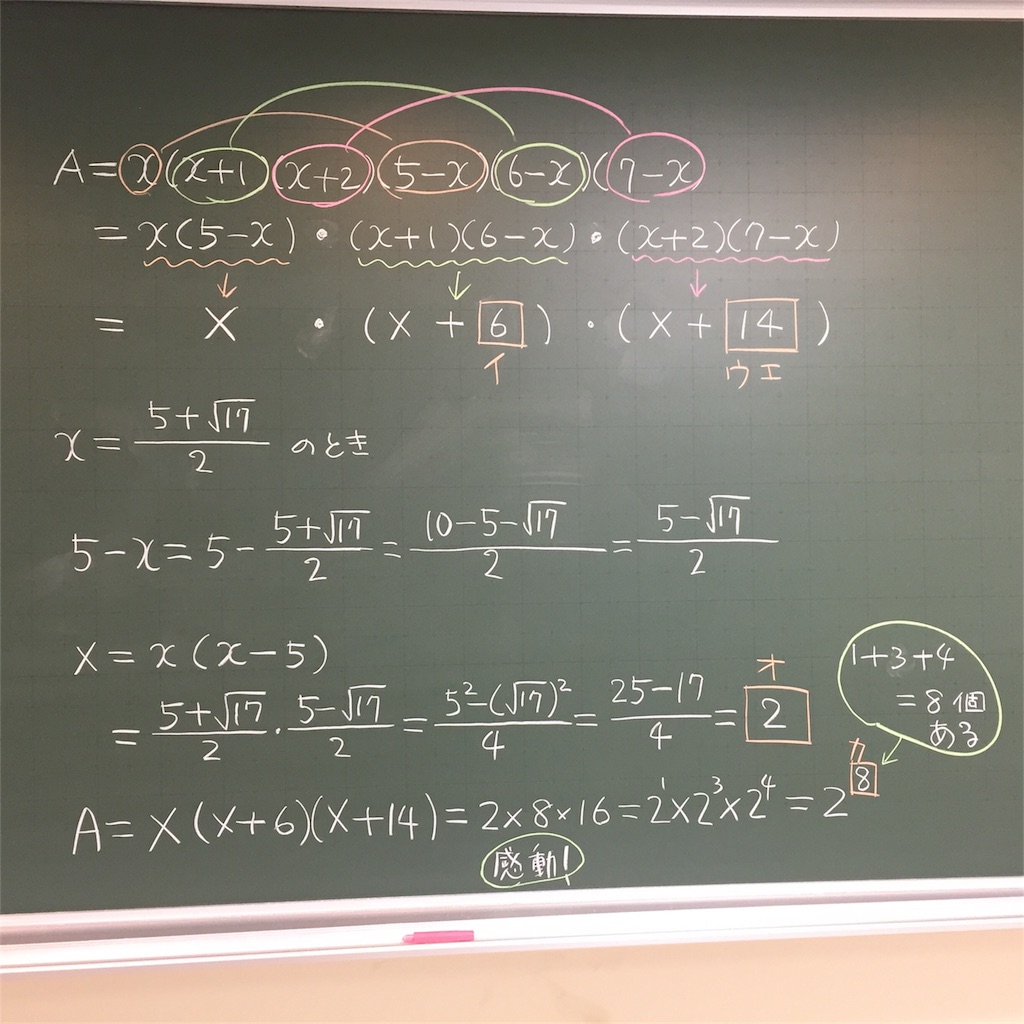 A=x(x+1)(x+2)(5-x)(6-x)(7-x)
=x(5-x)・(x+1)(6-x)・(x+2)(7-x)
= X ・(X+6)・(X+14)
イ ウエ
x=(5+√17)/2 のとき
5-x=5-(5+√17)/2=(10-5-√17)/2=(5-√17)/2
X=x(x-5)
=(5+√17)/2・(5-√17)/2=(5²-(√17)²)/4=(25-17)/4=2
オ
1+3+4
=8個
ある
カ
A=X(X+6)(X+14)=2×8×16=2¹×2³×2⁴=2⁸
感動!